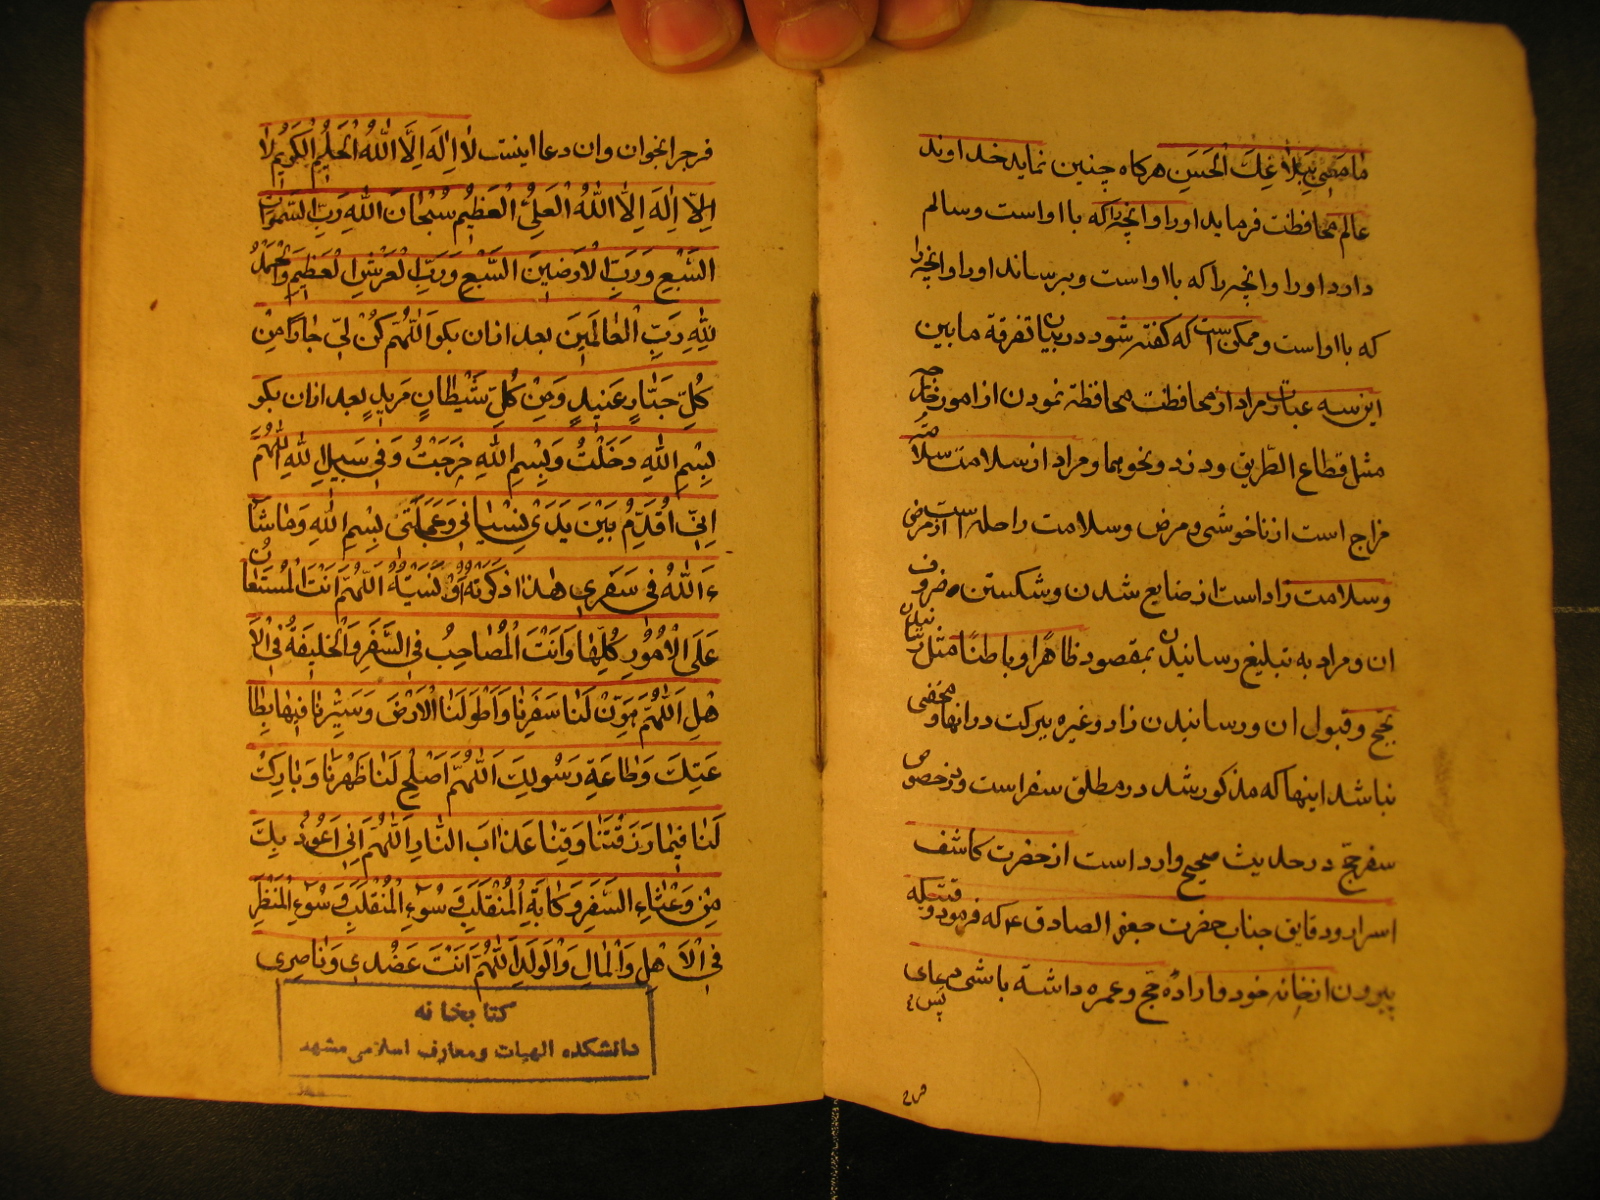 ما معی ببلاغك الحسن هرکاه چنین نماید خداوند
عالم محافظت فرماید اورا وانچه را که با اواست وسالم
دارد اورا وانچه را که با اواست وبرساند اورا وانچه را
که با اواست وممکن است که کفته شود در بیان تفرقة مابین
این سه عبارت مراد از محافظت محافظة نمودن از امور خارجه
مثل قطاع الطریق ودزد ونحوهما ومراد از سلامت سلامتی
مزاج است از ناخوشی ومرض وسلامت راحله است از مرض
وسلامت زاد است از ضایع شدن وشکستن ظروف
ان ومراد به تبلیغ رسانیدن بمقصود ظاهرا وباطنا مثل
حج وقبول ان ورسانیدن زاد وغیره ببرکت در انها ومخفی
نباشد اینها که مذکور شد در مطلق سفر است ودر خصوص
سفر حج در حدیث صحیح وارد است از حضرت کاشف
اسرار ودقایق جناب حضرت جعفر الصادق ع که فرمود وقتیکه
بیرون از خانه خود واراده حج وعمره داشته باشی دعای
پس
فرج
فرجرا بخوان وان دعا اینست لا اِلهَ اِلَّا اللّهُ الْحَلِیمُ الْکَرِیمُ لا
اِلهَ اِلَّا اللّهُ الْعَلِیُّ الْعَظِیمُ سُبْحانَ اللّهِ رَبِّ السَّمواتِ
السَّبْعِ وَرَبِّ الْاَرَضینَ السَّبْعِ وَرَبِّ الْعَرْشِ الْعَظیمِ وَالْحَمْدُ
لِلّهِ رَبِّ الْعالَمینَ بعد از ان بکو اَللّهُمَّ کُنْ لی جارًا مِنْ
کُلِّ جَبّارٍ عَنیدٍ وَمِنْ کُلِّ شَیْطانٍ مَریدٍ بعد از ان بکو
بِسْمِ اللّهِ دَخَلْتُ وَبِسْمِ اللّهِ خَرَجْتُ وَفی سَبیلِ اللّهِ اللّهُمَّ
اِنّی اُقَدِّمُ بَیْنَ یَدَیْ نِسْیانی وَعَجَلَتی بِسْمِ اللّهِ وَماشآ
ءَ اللّهُ فی سَفَری هذا ذَکَرْتُهُ اَوْ نَسیتُهُ اَللّهُمَّ اَنْتَ الْمُسْتَعانُ
عَلَی الْاُمُورِ کُلِّها وَاَنْتَ الْمُصاحِبُ فِی السَّفَرِ وَالْخَلیفَةُ فِی الْاَ
هْلِ اَللّهُمَّ هَوِّنْ لَنا سَفَرَنا وَاَطْوِ لَنَا الْاَرْضَ وَسَیِّرْنا فیها بِطا
عَتِكَ وَطاعَةِ رَسُولِكَ اَللّهُمَّ اَصْلِحْ لَنا ظَهْرَنا وَبارِكْ
لَنا فیما رَزَقْتَنا وَقِنا عَذابَ النّارِ اَللّهُمَّ اِنّی اَعُوذُ بِكَ
مِنْ وَعْثاءِ السَّفَرِ وَکابَةِ الْمُنْقَلَبِ وَسُوءِ الْمُنْقَلَبِ وَسُوءِ الْمَنْظَرِ
فِی الْاَهْلِ وَالْمالِ وَالْوَلَدِ اَللّهُمَّ اَنْتَ عَضُدی وَناصِری
کتابخانه
دانشکده الهیات ومعارف اسلامی مشهد